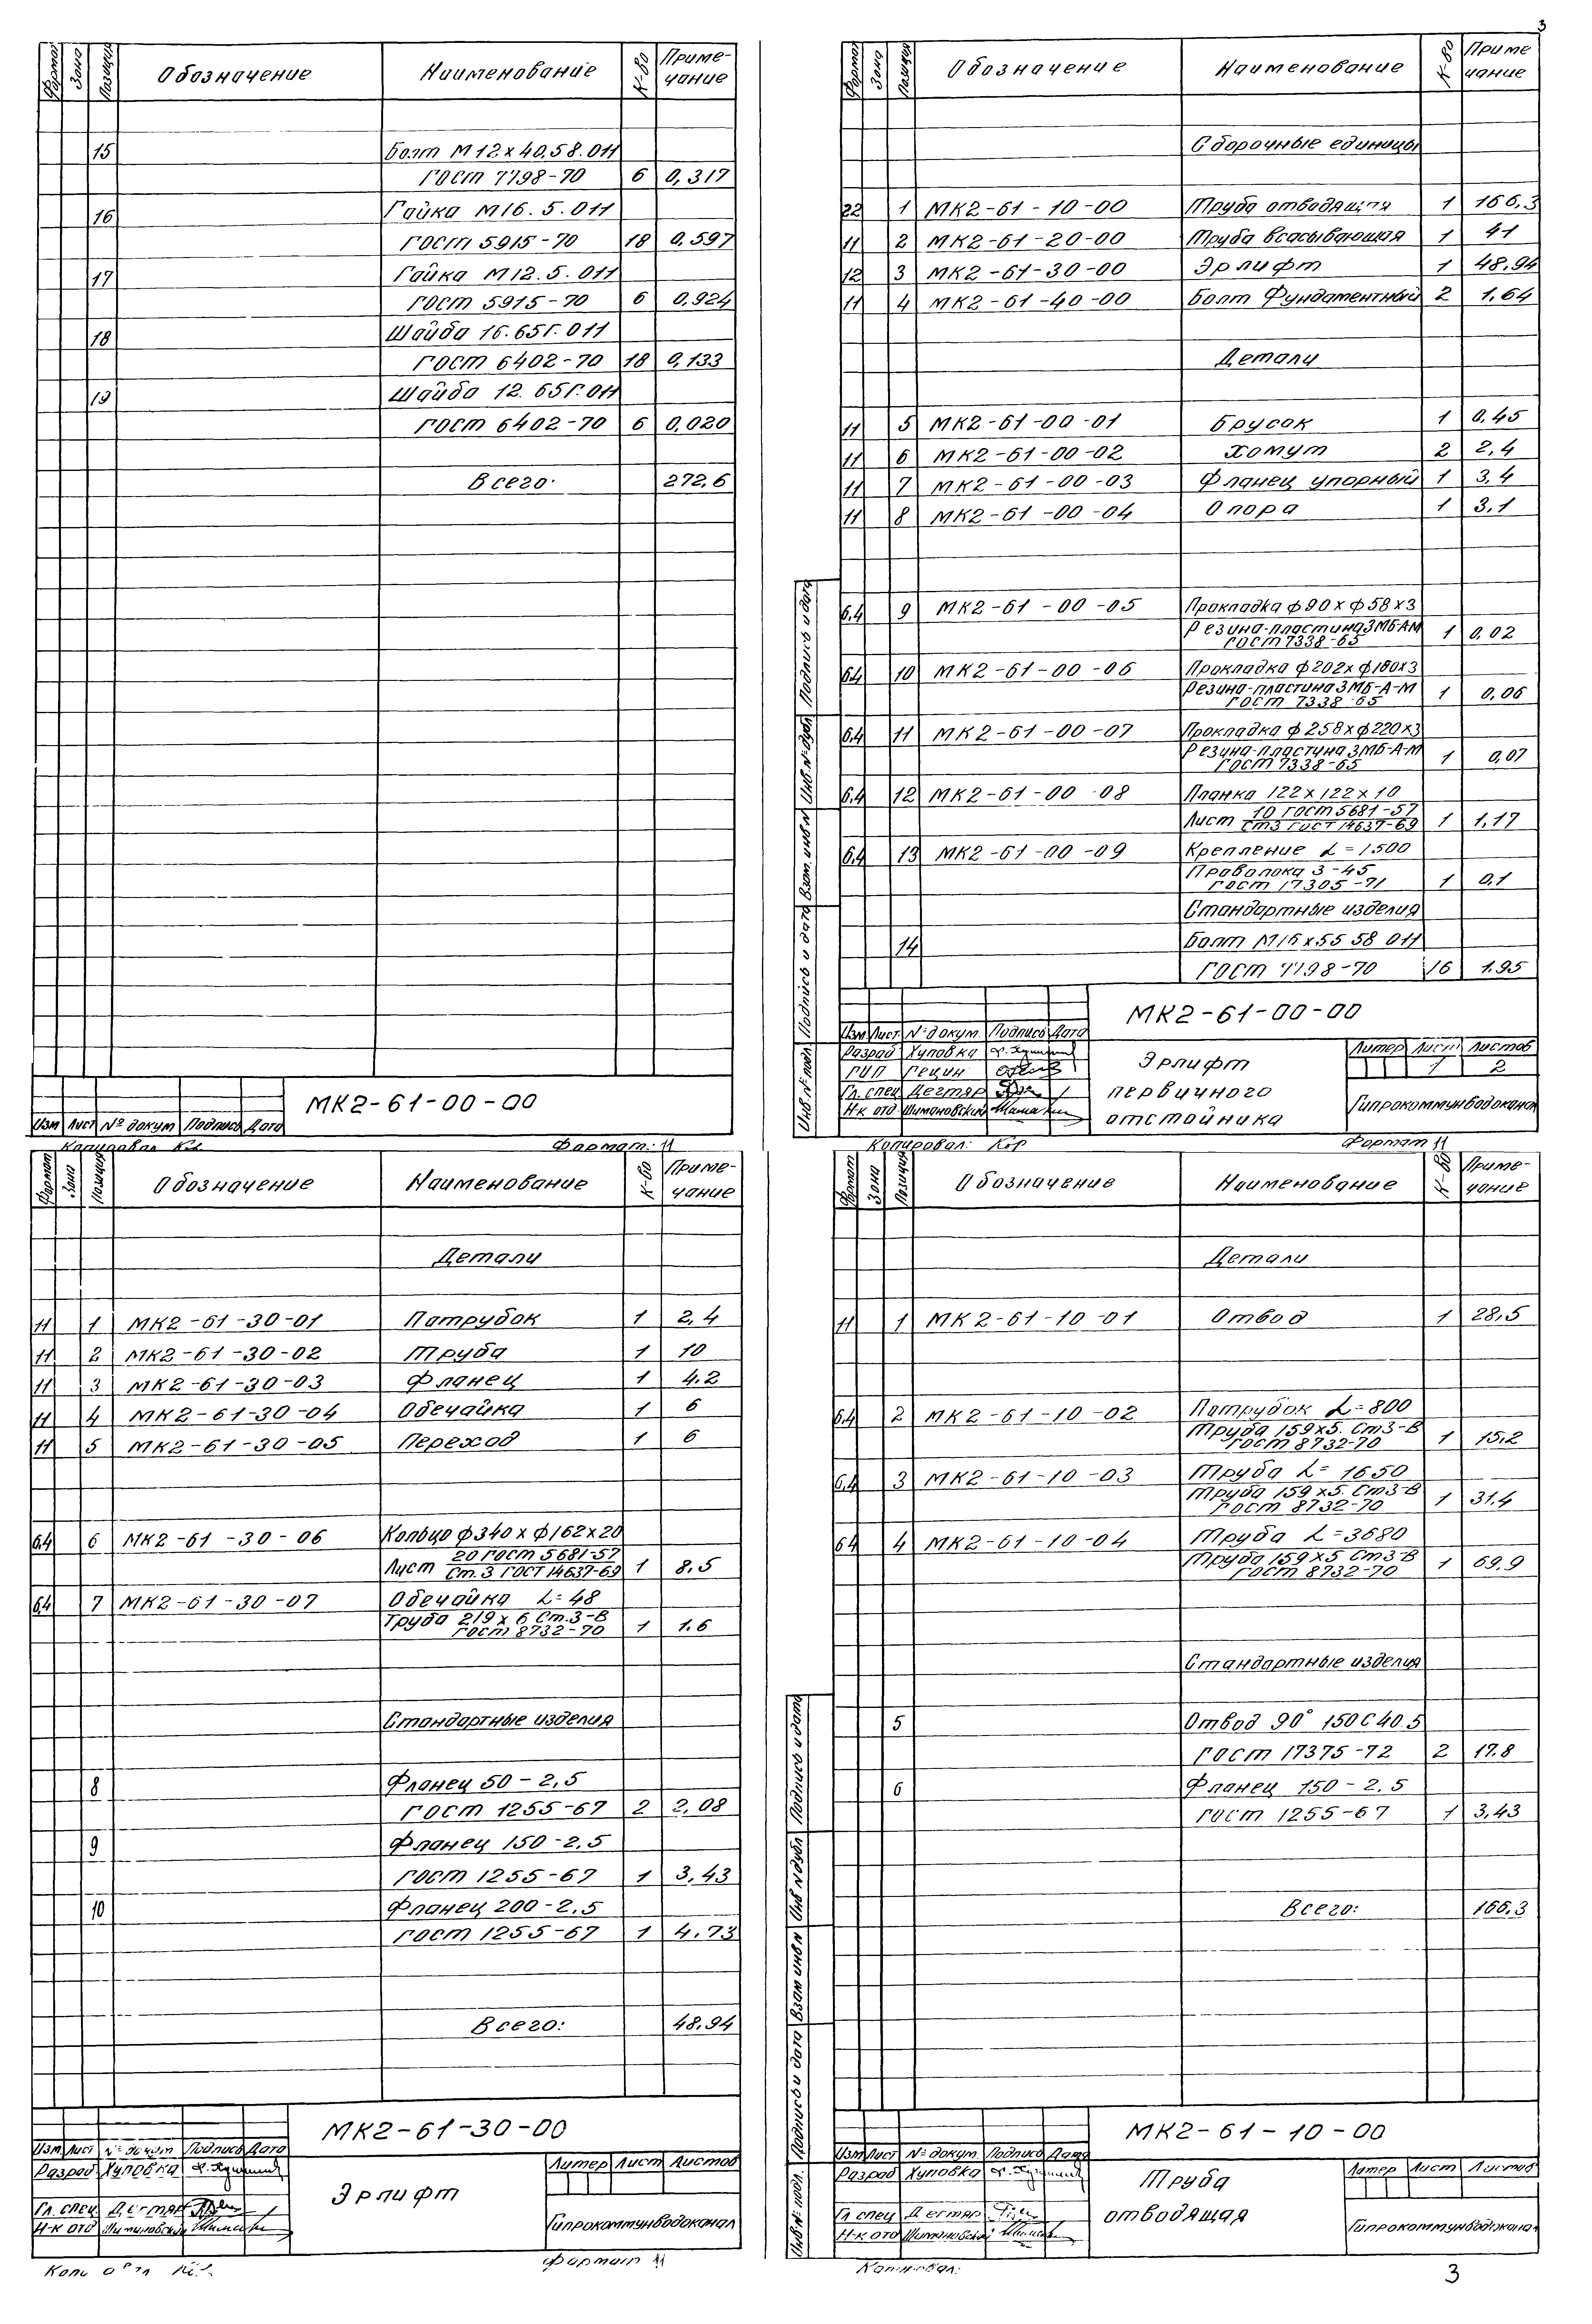 3
Формат Зона Позиция Обозначение Наименование К-во Приме-
чание
15 Болт М12х40.58.011
ГОСТ 7798-70 6 0,317
16 Гайка М16.5.011
ГОСТ 5915-70 18 0,597
17 Гайка М12.5.011
ГОСТ 5915-70 6 0.924
18 Шайба 16.65Г.011
ГОСТ 6402-70 18 0,133
19 Шайба 12.65Г.011
ГОСТ 6402-70 6 0,020
Всего: 272,6
МК2-61-00-00
Изм Лист № докум Подпись Дата
Копировал Формат: 11
Формат Зона Позиция Обозначение Наименование К-во Приме
чание
Сборочные единицы
22 1 МК2-61-10-00 Труба отводящая 1 166,3
11 2 МК2-61-20-00 Труба всасывающая 1 41
12 3 МК2-61-30-00 Эрлифт 1 48,94
11 4 МК2-61-40-00 Болт Фундаментный 2 1,64
Детали
11 5 МК2-61-00-01 Брусок 1 0,45
11 6 МК2-61-00-02 Хомут 2 2,4
11 7 МК2-61-00-03 Фланец упорный 1 3,4
11 8 МК2-61-00-04 Опора 1 3,1
б.4 9 МК2-61-00-05 Прокладка ф90хф58х3
Резина-пластина 3МБАМ
ГОСТ 7338-65 1 0,02
б4 10 МК2-61-00-06 Прокладка ф202хф180х3
Резина-пластина 3МБ-А-М
ГОСТ 7338-65 1 0,06
б.4 11 МК2-61-00-07 Прокладка ф258хф220х3
Резина-пластина 3МБ-А-М
ГОСТ 7338-65 1 0,07
б.4 12 МК2-61-00-08 Планка 122х122х10
Лист 10 ГОСТ 5681-57
Ст3 ГОСТ 14637-69 1 1,17
б.4 13 МК2-61-00-09 Крепление L=1500
Проволока 3-45
ГОСТ 17305-71 1 0,1
Стандартные изделия
14 Болт М16х55 58 011
ГОСТ 7798-70 16 1.95
Подпись и дата
Инв. № дубл
Взам. инв. №
Подпись и дата
Инв. № подл.
МК2-61-00-00
Изм Лист № докум Подпись Дата
Разраб Хуповка
ГИП Гецин
Гл. спец Дегтяр
Н-к отд Шимановский
Эрлифт
первичного
отстойника
Литер Лист Листов
1 2
Гипрокоммунводоканал
Копировал: Кор Формат 11
Формат Зона Позиция Обозначение Наименование К-во Приме-
чание
Детали
11 1 МК2-61-30-01 Патрубок 1 2,4
11 2 МК2-61-30-02 Труба 1 10
11 3 МК2-61-30-03 Фланец 1 4.2
11 4 МК2-61-30-04 Обечайка 1 6
11 5 МК2-61-30-05 Переход 1 6
б.4 6 МК2-61-30-06 Кольцо ф340хф162х20
Лист 20 ГОСТ 5681-57
Ст.3 ГОСТ 14637-69 1 8,5
б.4 7 МК2-61-30-07 Обечайка L=48
Труба 219х6 Ст.3-В
ГОСТ 8732-70 1 1.6
Стандартные изделия
8 Фланец 50-2,5
ГОСТ 1255-67 2 2,08
9 Фланец 150-2.5
ГОСТ 1255-67 1 3,43
10 Фланец 200-2.5
ГОСТ 1255-67 1 4.73
Всего: 48.94
МК2-61-30-00
Изм Лист № докум Подпись Дата
Разраб Хуповка
Гл. спец Дегтяр
Н-к отд Шимановский
Эрлифт
Литер Лист Листов
Гипрокоммунводоканал
Формат 11
Формат Зона Позиция Обозначение Наименование К-во Приме-
чание
Детали
11 1 МК2-61-10-01 Отвод 1 28,5
б.4 2 МК2-61-10-02 Патрубок L=800
Труба 159х5. Ст3-В
ГОСТ 8732-70 1 15,2
б.4 3 МК2-61-10-03 Труба L=1650
Труба 159х5. Ст3-В
ГОСТ 8732-70 1 31.4
б4 4 МК2-61-10-04 Труба L=3680
Труба 159х5 Ст3-В
ГОСТ 8732-70 1 69,9
Стандартные изделия
5 Отвод 90° 150С40.5
ГОСТ 17375-72 2 17.8
6 Фланец 150-2.5
ГОСТ 1255-67 1 3,43
Всего: 166.3
Подпись и дата
Инв № дубл
Взам инв №
Подпись и дата
Инв. № подл.
МК2-61-10-00
Изм Лист № докум Подпись Дата
Разраб Хуповка
Гл спец Дегтяр
Н-к отд Шимановский
Труба
отводящая
Литер Лист Листов
Гипрокоммунводоканал
Копировал:
3